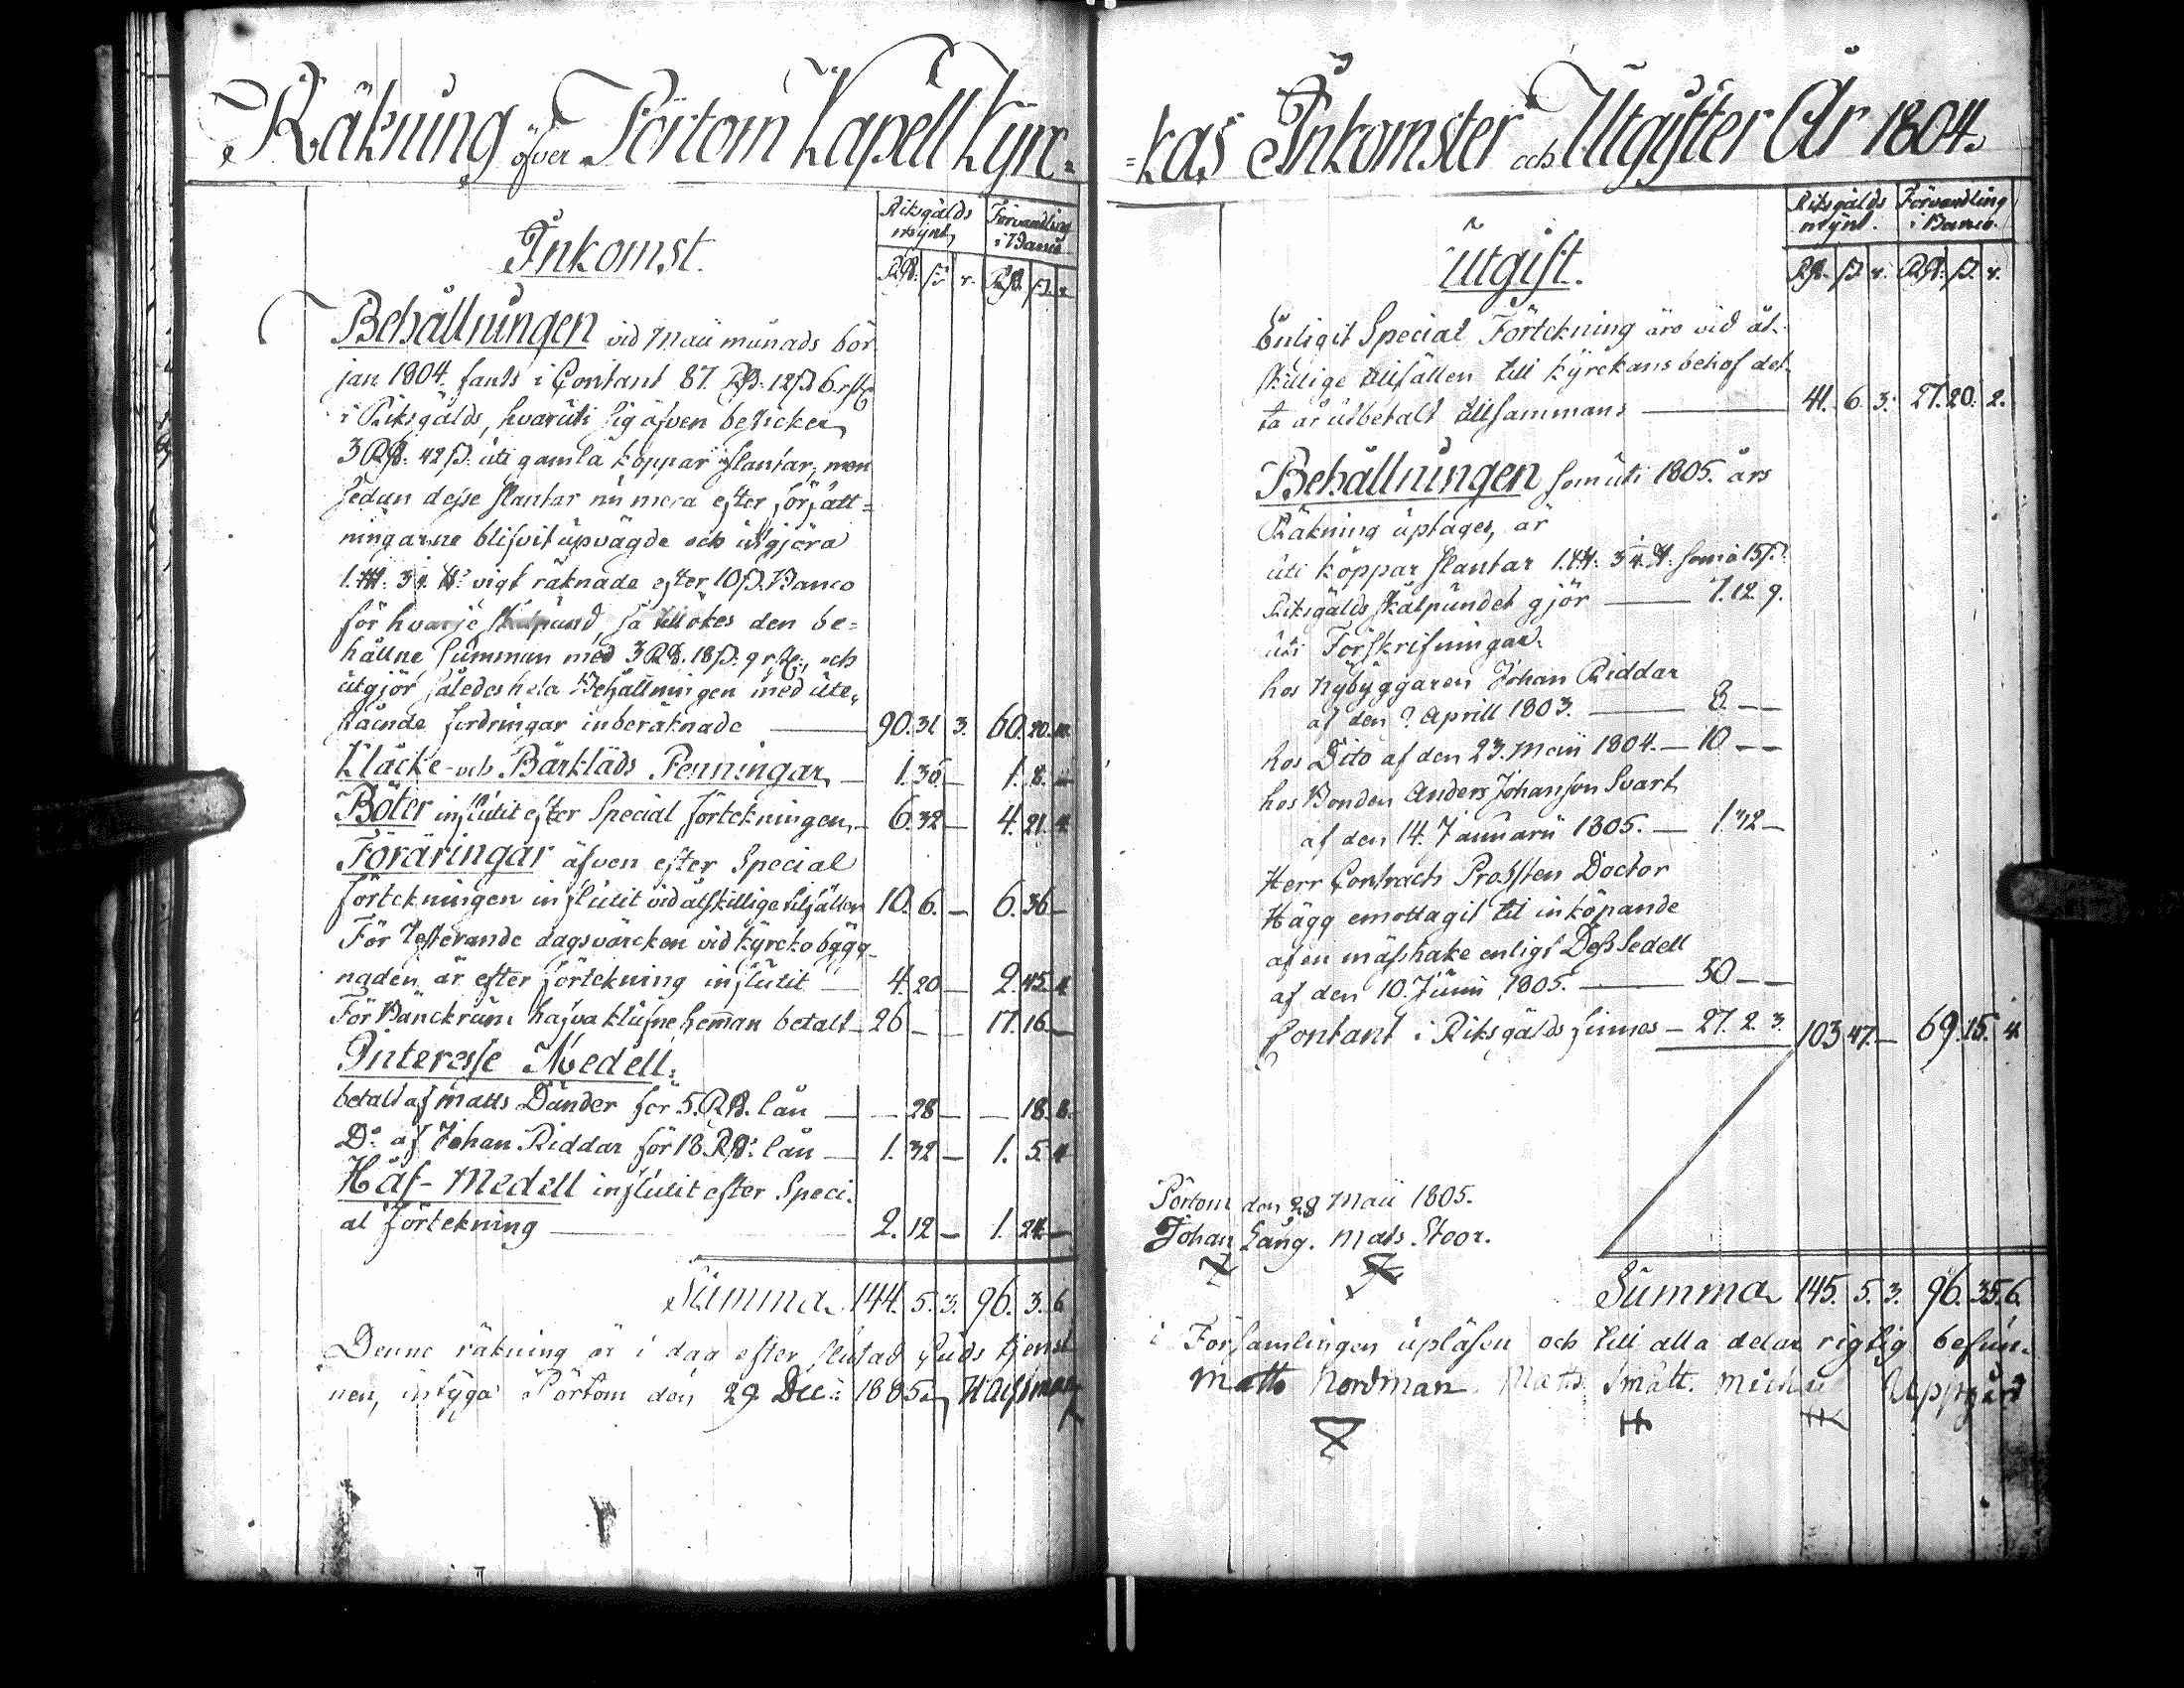 Räkning öfver Pörtom Kapell Kyrc=
Riksgälds mÿnt, Förvandling i Banco
Inkomst.
RD. ß. r. RD. ß. r.
Behållningen vid Maii månads bör
jan 1804. fants i Contant 87. RD: 12 ß 6. rst
i Riksgälds, hvaruti sig äfven besticker
3 RD: 42 ß: uti gamla koppar slantar, men
sedan desse slantar nu mera efter författ=
ningarne blifvit upvägde och utgjöra
1. ℔: 3 ℔: vigt räknade efter 10 ß. Banco
för hvarje skålpund, så tillökes den be=
hållne summan med 3 RD. 18 ß: 9 rst, och
utgjör således hela Behållningen med ute,
stående fordringar inberäknade — 90. 31 3. 60. 20.
Kläcke- och Bårkläds Penningar — 1. 36 — 1. 8. —
Böter influtit efter Special förtekningen — 6. 32 — 4. 21. 4
Föräringar äfven efter Special
förtekningen influtit vid åtskillige tilfällen 10. 6. — 6. 36 —
För resterande dagsvärcken vid kyrckobygg-
naden är efter förtekning influtit — 4. 20 — 2. 45. 4
För Bänckrum hafva klufne heman betalt — 26 — — 17. 16 —
Interesse Medell:
betalt af Matts Dander för 5. RD. lån — — 28 — — 18. 8.
D:o af Johan Riddar för 18 RD: lån — 1. 32 — 1. 5. 4
Håf-Medell influtit efter Speci.
al förtekning — 2. 12 — 1. 24 —
Summa 144. 5. 3. 96. 3. 6
Denne räkning är i dag efter slutad Guds tjenst
nen, intyga Pörtom den 29 Dec: 1805
=kas Inkomster och Utgifter År 1804.
Riksgälds mÿnt. Förvandling i Banco.
Utgift.
RD. ß. r. RD. ß. r.
Enligit Special Förtekning äro vid åt-
skillige tillfällen till kyrckans behof det-
ta år utbetalt tillsammans — 41. 6 3. 27. 20. 2.
Behållningen som uti 1805. års
Räkning uptages, är
uti koppar slantar 1. ℔: 3 ℔. som à 15 ß.
Riksgälds skålpundet gjör — 7. 12 9.
uti Förskrifningar.
hos Nybyggaren Johan Riddar
af den ? Aprill 1803. — 8. — —
hos Dito af den 23. Maii 1804. — 10 — —
hos Bonden Anders Johanson Svart
af den 14. Januarii 1805. — 1. 32 —
Herr Contracts Prossten Doctor
Hägg emottagit til inköpande
af en mässhake enligt Dess Sedell
af den 10. Junii 1805. — 50 — —
Contant i Riksgälds finnes — 27. 2. 3. 103 47. — 69. 15. 4
Pörtom den 28 Maii 1805.
Johan Lång. Mats Stoor.
Summa 145. 5. 3. 96. 35. 6.
i Församlingen upläsen och till alla delar rigtig befun-
Matts Nordman Matts Smått. Uppgård